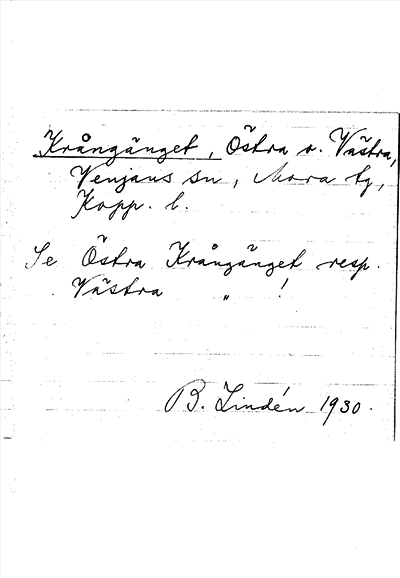 Krångänget, Östra o. Västra,
Venjans sn, Mora tg,
Kopp. l.
Se Östra Krångänget resp.
Västra „ !
B. Lindén 1930.